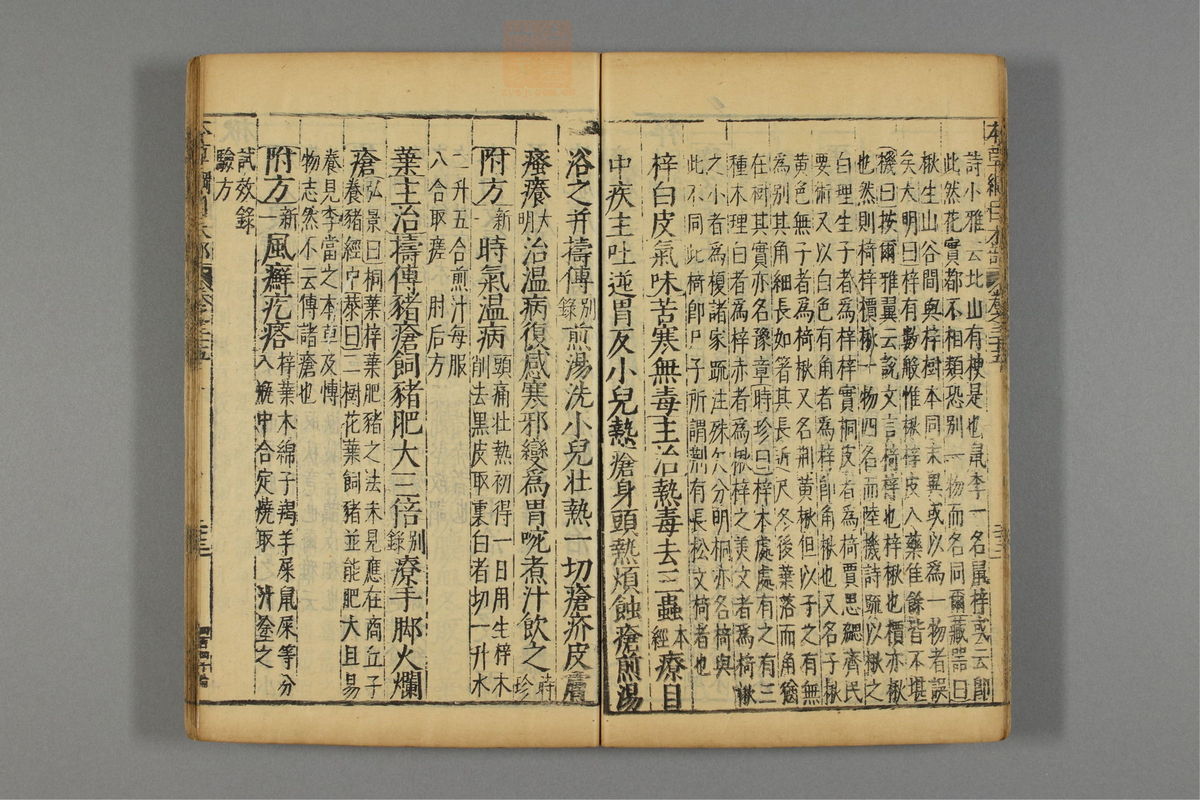 詩小雅云北山有楰是也鼠李一名鼠梓或云卽
此然花實都不相類恐別一物而名同爾藏器曰
楸生山谷間與梓樹本同末異或以爲一物者誤
矣大明曰梓有數般惟楸梓皮入藥佳餘皆不堪
機曰按爾雅翼云說文言椅梓也梓楸也檟亦楸
也然則椅梓檟楸一物四名而陸機詩疏以楸之
白理生子者爲梓梓實桐皮者爲椅賈思勰齊民
要術又以白色有角者爲梓卽角楸也又名子楸
黃色無子者爲椅楸又名荊黃楸但以子之有無
爲別其角細長如箸其長近尺冬後葉落而角猶
在樹其實亦名豫章時珍曰梓木處處有之有三
種木理白者爲梓赤者爲楸梓之美文者爲椅楸
之小者爲榎諸家疏注殊欠分明桐亦名椅與
此不同此椅卽尸子所謂荊有長松文椅者也
梓白皮氣味苦寒無毒主治熱毒去三蟲本經療目
中疾主吐逆胃反小兒熱瘡身頭熱煩蝕瘡煎湯
浴之并擣傅別錄煎湯洗小兒壯熱一切瘡疥皮膚
瘙癢大明治溫病復感寒邪變爲胃啘煮汁飲之時珍
附方新一時氣溫病頭痛壯熱初得一日用生梓木
削去黑皮取裏白者切一升水
二升五合煎汁每服
八合取瘥 肘后方
葉主治擣傅豬瘡飼豬肥大三倍別錄療手脚火爛
瘡弘景曰桐葉梓葉肥豬之法未見應在商丘子
養豬經中恭曰二樹花葉飼豬並能肥大且易
養見李當之本草及博
物志然不云傅諸瘡也
附方新一風癬疙瘩梓葉木綿子羯羊屎鼠屎等分
入瓶中合定燒取汁塗之
試效錄
驗方